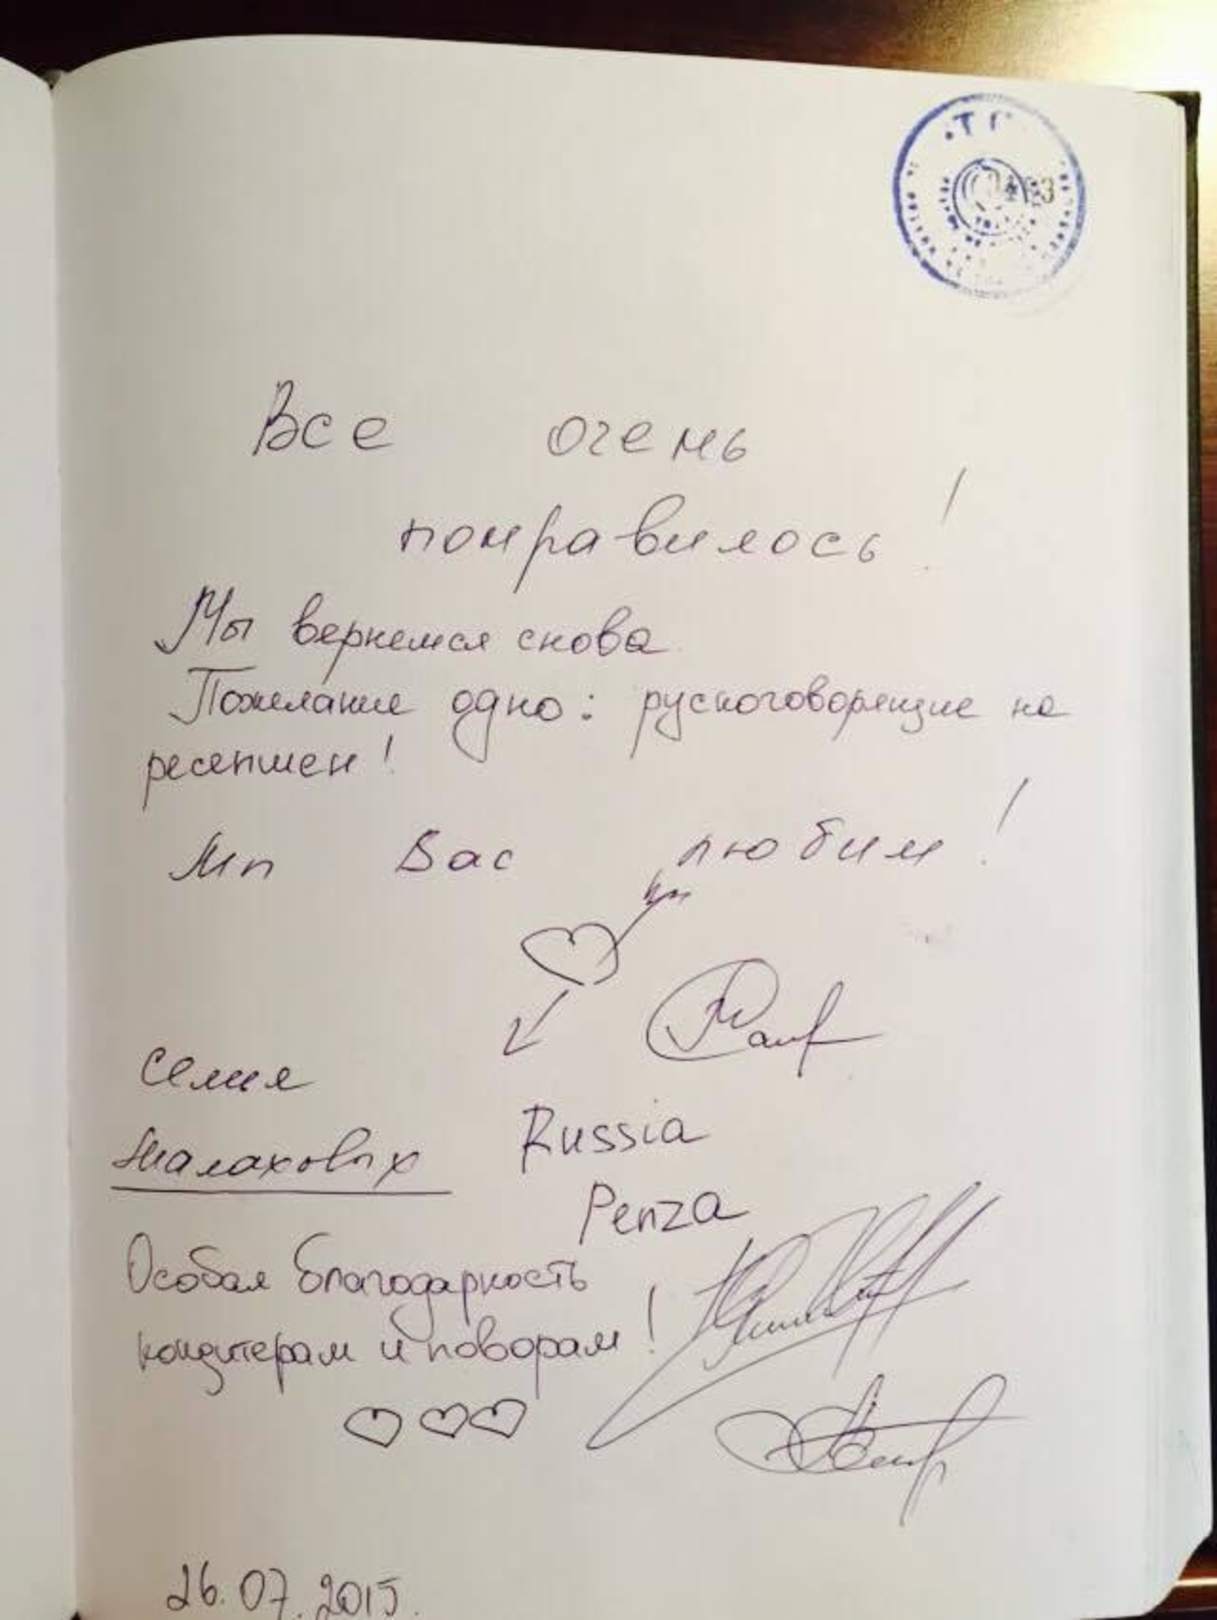 Все очень
понравилось!
Мы вернемся снова.
Пожелание одно: рускоговорящие на
ресепшен!
Мы Вас любим!
Семья
Малаховых
Russia
Penza
Особая благодарность
кондитерам и поворам!
26.07.2015.